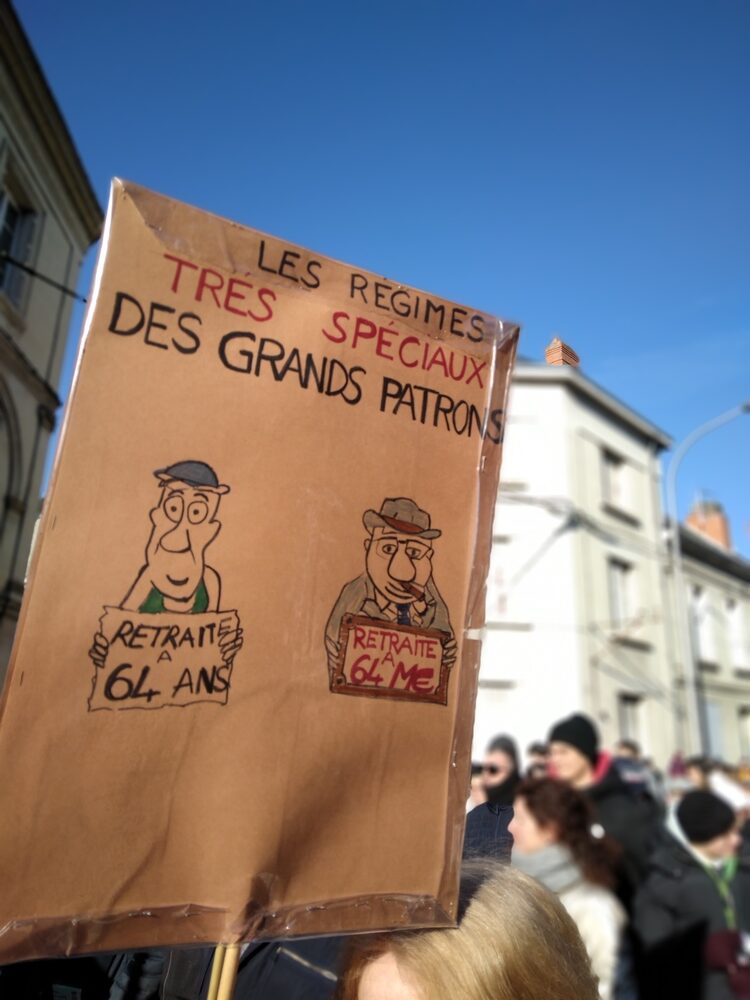 LES REGIMES
TRÉS SPÉCIAUX
DES GRANDS PATRONS
RETRAITE
A
64 ANS
RETRAITE
A
64 M€